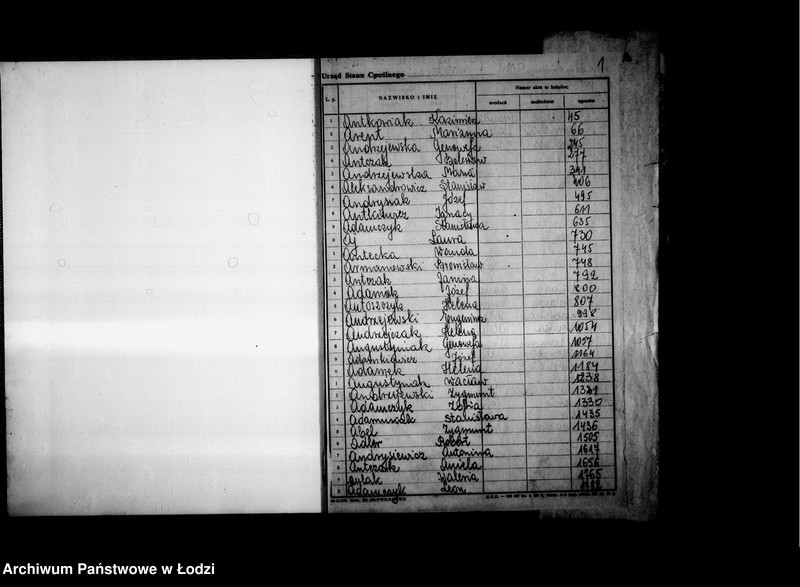 1
Urząd Stanu Cywilnego
L. p. NAZWISKO i IMIĘ Numer aktu w księdze:
urodzeń małżeństw zgonów
1 Antkowiak Kazimierz 45
2 Arent Marianna 66
3 Andrzejewska Genowefa
4 Antczak Bolesław 277
5 Andrzejewska Maria 341
6 Aleksandrowicz Stanisław 406
7 Andrysiak Józef 495
8 Ignacy 611
9 Adamczyk Stanisława 635
0 Aj Laura 730
1 Wanda 745
2 Armanowski Bronisław 748
3 Antczak Janina 792
4 Adamiak Józef 800
5 Antoszczyk Helena 807
6 Andrzejewski Eugeniusz 998
7 Andrzejczak Helena 1054
8 Augustyniak Genowefa 1057
9 Adamkiewicz Józef 1164
0 Adamek Helena 1184
1 Augustyniak Wacław 1238
2 Andrzejewski Zygmunt 1321
3 Adamczyk Zofia 1330
4 Adamusiak Stanisława 1435
5 Abel Zygmunt 1436
6 Adler Robert 1505
7 Andrysiewicz Antonina 1617
8 Antczak Aniela 1656
9 Waleria 1765
0 Adamczyk Leon
Archiwum Państwowe w Łodzi